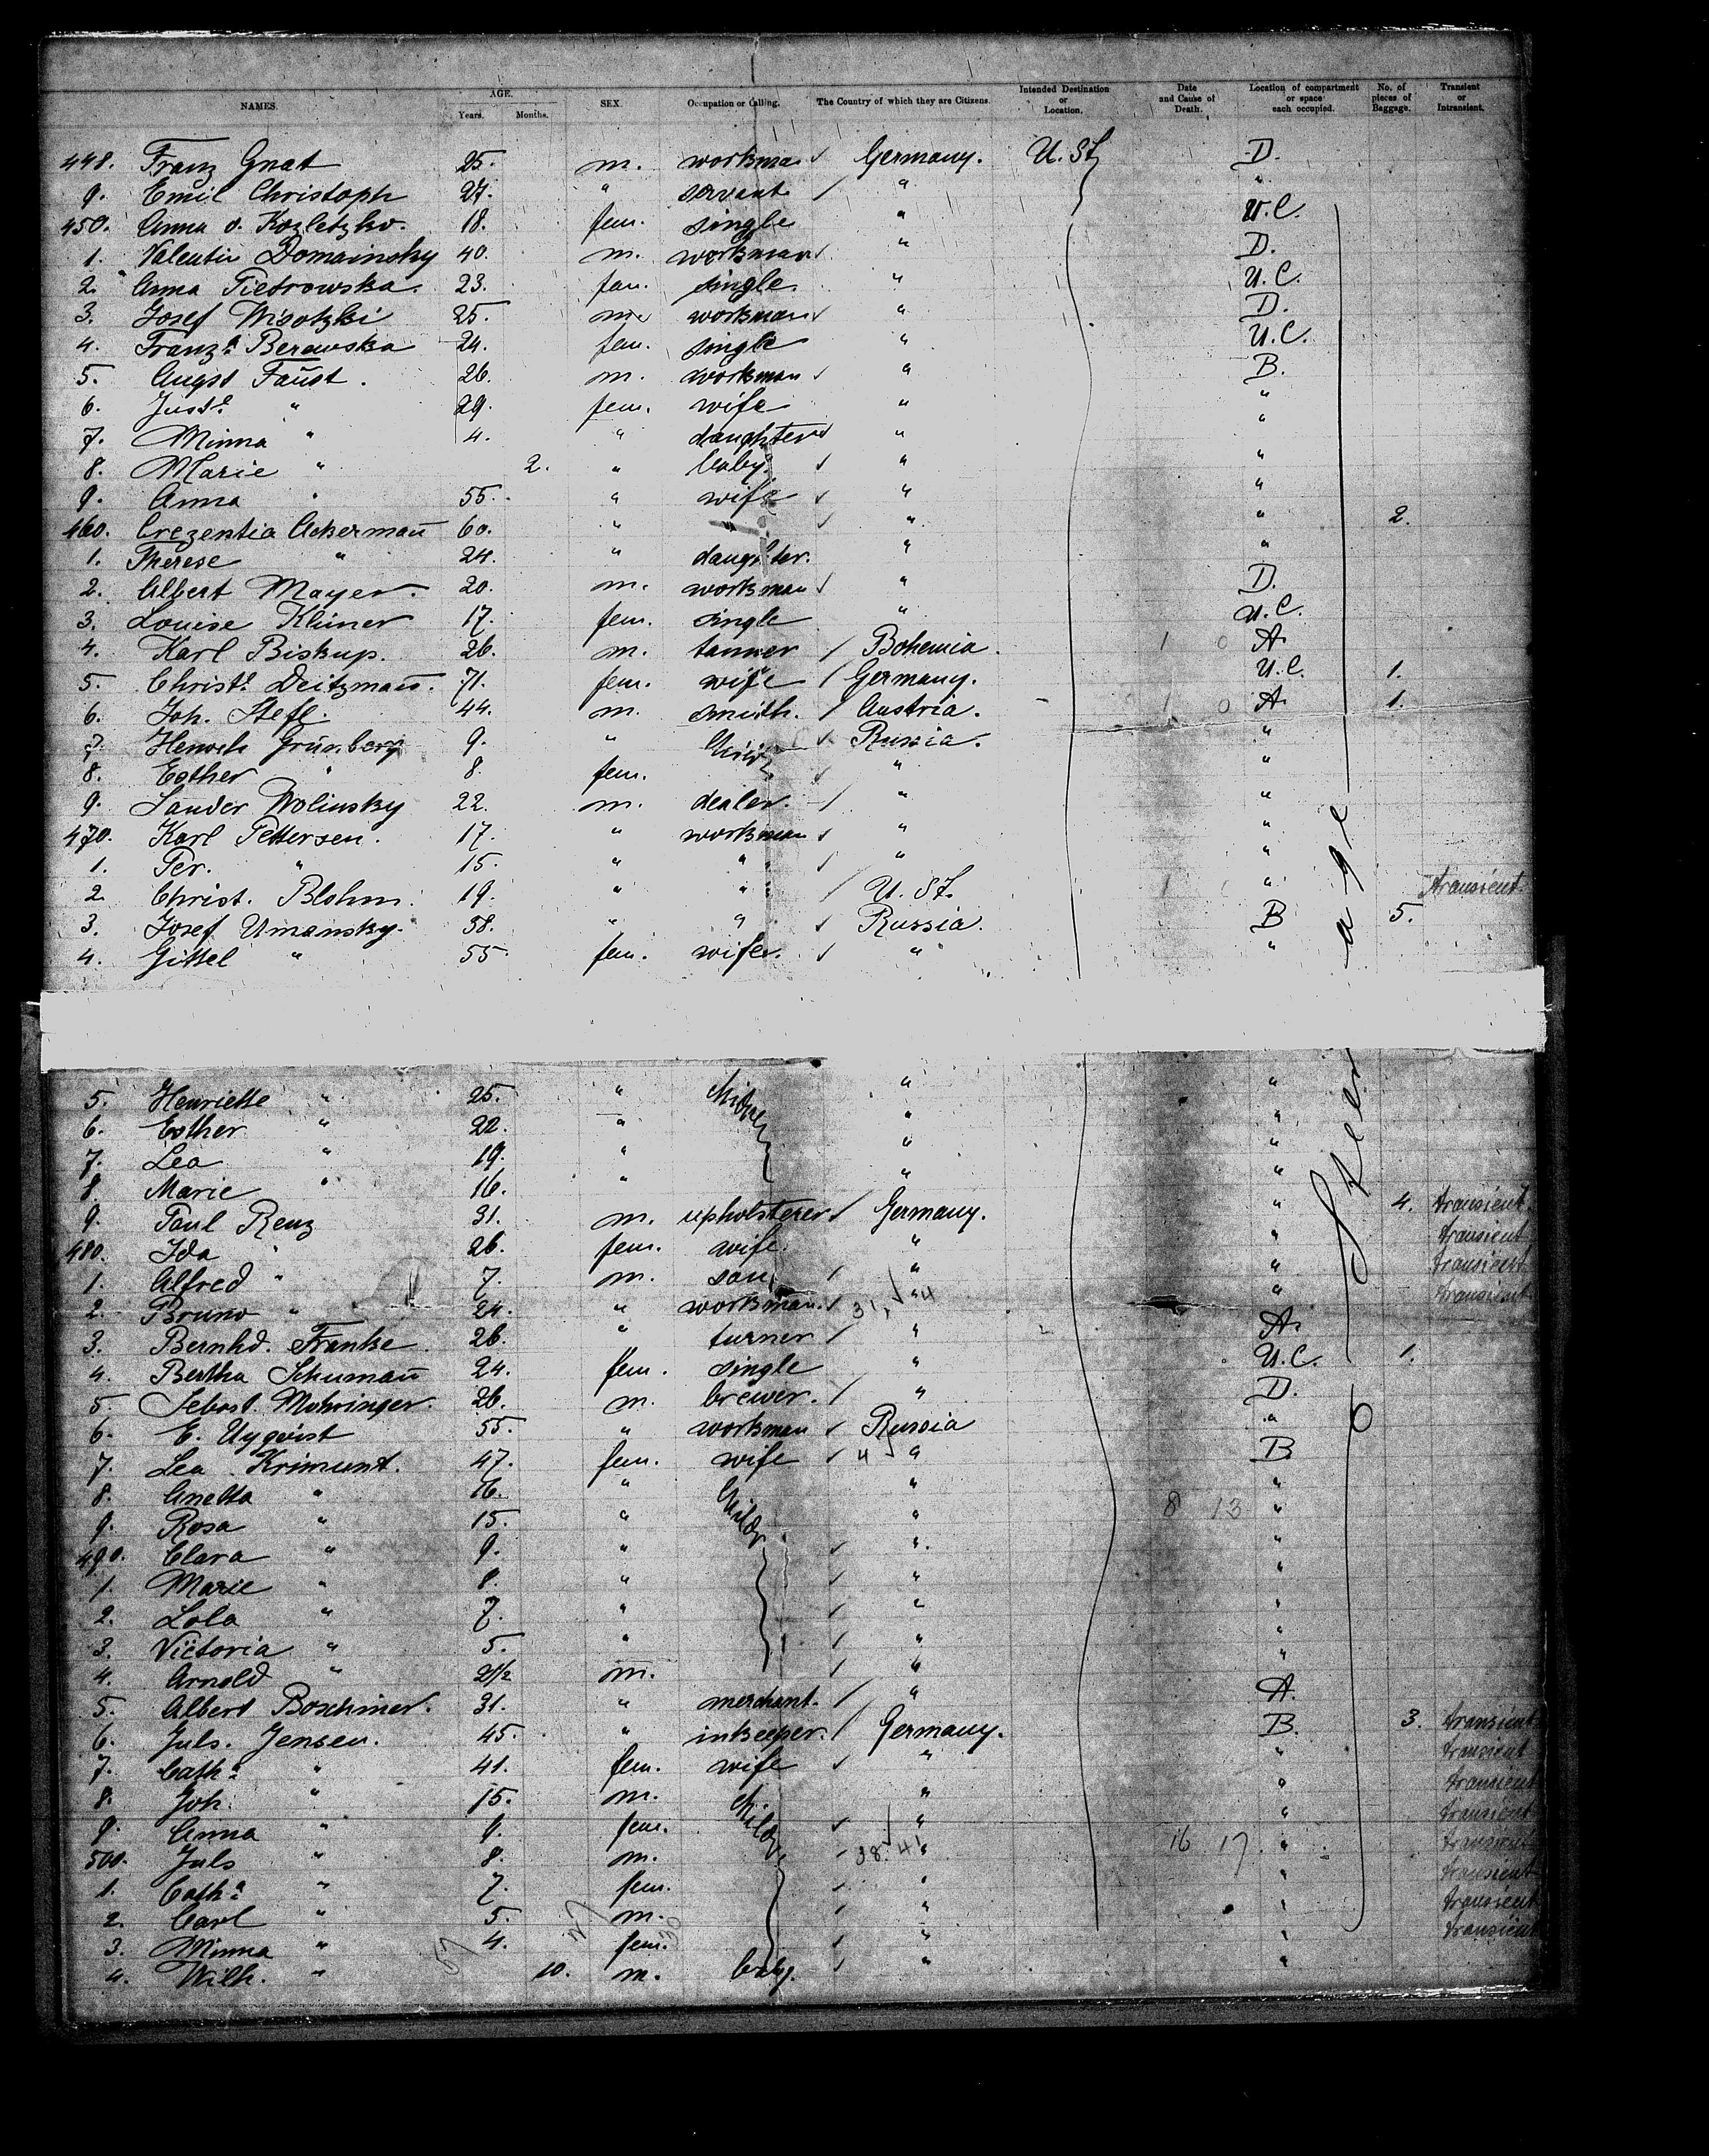 NAMES. AGE. Years. Months. SEX. Occupation or Calling. The Country of which they are Citizens. Intended Destination or Location. Date and Cause of Death. Location of compartment or space each occupied. No. of pieces of Baggage. Transient or Intransient.
448. Franz Gnat 25. m. workman Germany. U. St. D.
9. Emil Christoph 27. " servant " "
450. Anna v. 18. fem. single " U.C.
1. Valentin Domainsky 40. m. workman " D.
2. Anna Pietrowska. 23. fem. single. " U.C.
3. Josef Wisotzki 25. m. workman " D.
4. Franz.a Berawska 24. fem. single " U.C.
5. Augst Faust. 26. m. workman " B.
6. Just.e " 29. fem. wife " "
7. Minna " 4. " daughter " "
8. Marie " 2. " baby. " "
9. Anna " 55. " wife " "
460. Crezentia Ackermañ 60. " " " " 2.
1. Therese " 24. " daughter. " "
2. Albert Mayer. 20. m. workman " D.
3. Louise Klimer 17. fem. single " U.C.
4. Karl Biskup. 26. m. tanner Bohemia. 1 0 A.
5. Christ.e Deitzmañ. 71. fem. wife Germany. U.C. 1.
6. Joh. Stefl. 44. m. smith. Austria. 1 0 A. 1.
7. Hensch Grünberg 9. " Child Russia. "
8. Esther " 8. fem. " "
9. Sander Wolinsky 22. m. dealer. " "
470. Karl Pettersen. 17. " workman " "
1. Per. " 15. " " " "
2. Christ. Blohm. 19. " " U. St. 1 " transient
3. Josef Umansky. 58. " " Russia. B 5.
4. Gittel " 55. fem. wife. " "
5. Henriette " 25. " Children " "
6. Esther " 22. " " "
7. Lea " 19. " " "
8. Marie " 16. " " "
9. Paul Renz 31. m. upholsterer Germany. " 4. transient
480. Ida " 26. fem. wife. " " transient
1. Alfred " 7. m. son " " transient
2. Bruno " 24. " workman. " " transient
3. Bernhd. Franke. 26. " turner " A.
4. Bertha Schumañ 24. fem. single " U.C. 1.
5. Sebast. Mohringer. 26. m. brewer. " D.
6. E. Uyqvist 55. " workman Russia "
7. Lea Krimunt. 47. fem. wife 4 " B.
8. Anetta " 16. " Childr. " "
9. Rosa " 15. " " 8 13 "
490. Clara " 9. " " "
1. Marie " 8. " " "
2. Lola " 7. " " "
3. Victoria " 5. " " "
4. Arnold " 2½ m. " "
5. Albert Boschmer. 31. " merchant. " A.
6. Juls. Jensen. 45. " inkeeper. Germany. B. 3. transient
7. Cath.a " 41. fem. wife " " transient
8. Joh. " 15. m. Childr. " " transient
9. Anna " 9. fem. " " transient
500. Juls " 8. m. 38. 41 " 16 17 " transient
1. Cath.a " 7. fem. " " transient
2. Carl " 5. m. " " transient
3. Minna " 4. fem. " " transient
4. Wilh. " 10. m. baby. " "
Steerage